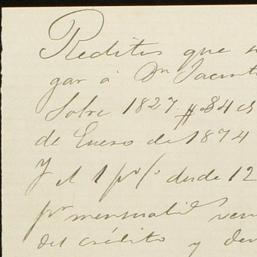 Reditos que s
gar á Dn Jacint
Sobre 1827 $84 cs
de Enero de 1874
Y el 1 p% desde 12
pr mensualids ven
del crédito y dev